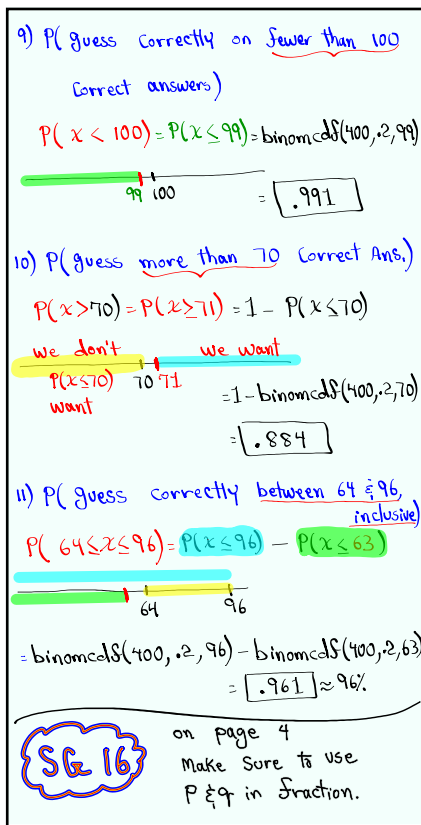 9) P( guess correctly on fewer than 100
correct answers)
P( x < 100) = P(x ≤ 99) = binomcdf(400, .2, 99)
99 100
= .991
10) P( guess more than 70 correct Ans.)
P(x > 70) = P(x ≥ 71) = 1 - P(x ≤ 70)
we don't we want
P(x ≤ 70) 70 71
want
= 1 - binomcdf(400, .2, 70)
= .884
11) P( guess correctly between 64 & 96,
inclusive)
P( 64 ≤ x ≤ 96) = P(x ≤ 96) - P(x ≤ 63)
64 96
= binomcdf(400, .2, 96) - binomcdf(400, .2, 63)
= .961 ≈ 96%
SG 16
on page 4
Make sure to use
P & q in fraction.